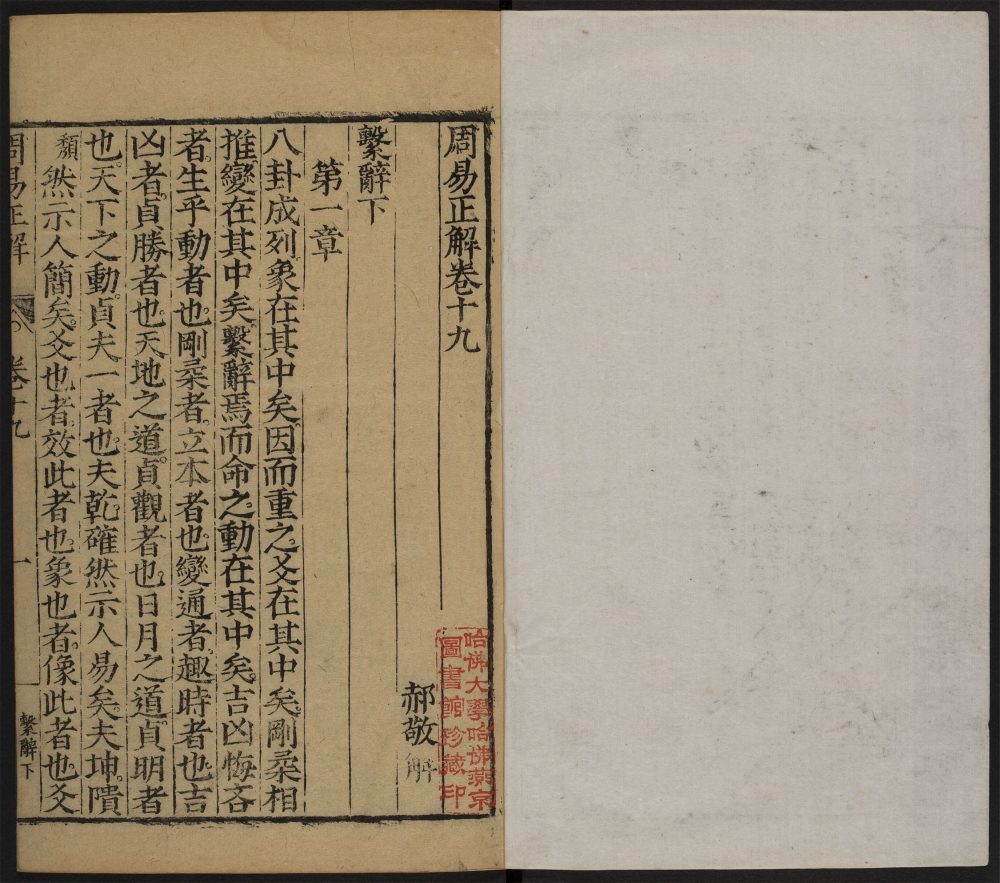 周易正解卷十九
郝敬解
繫辭下
第一章
八卦成列象在其中矣因而重之爻在其中矣剛柔相
推變在其中矣繫辭焉而命之動在其中矣吉凶悔吝
者生乎動者也剛柔者立本者也變通者趣時者也吉
凶者貞勝者也天地之道貞觀者也日月之道貞明者
也天下之動貞夫一者也夫乾確然示人易矣夫坤隤
頹然示人簡矣爻也者效此者也象也者像此者也爻
周易正解
卷十九
一
繫辭下
哈佛大學哈佛燕京
圖書館珍藏印